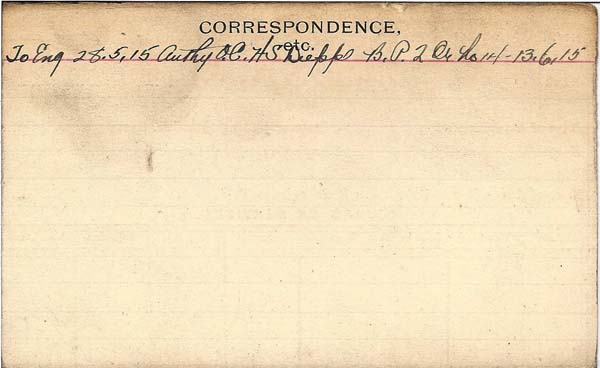 CORRESPONDENCE,
etc.
To Eng 28.5.15 Authy O.C. HS Diepps B.P. 2 Or No 14 - 13.6.15